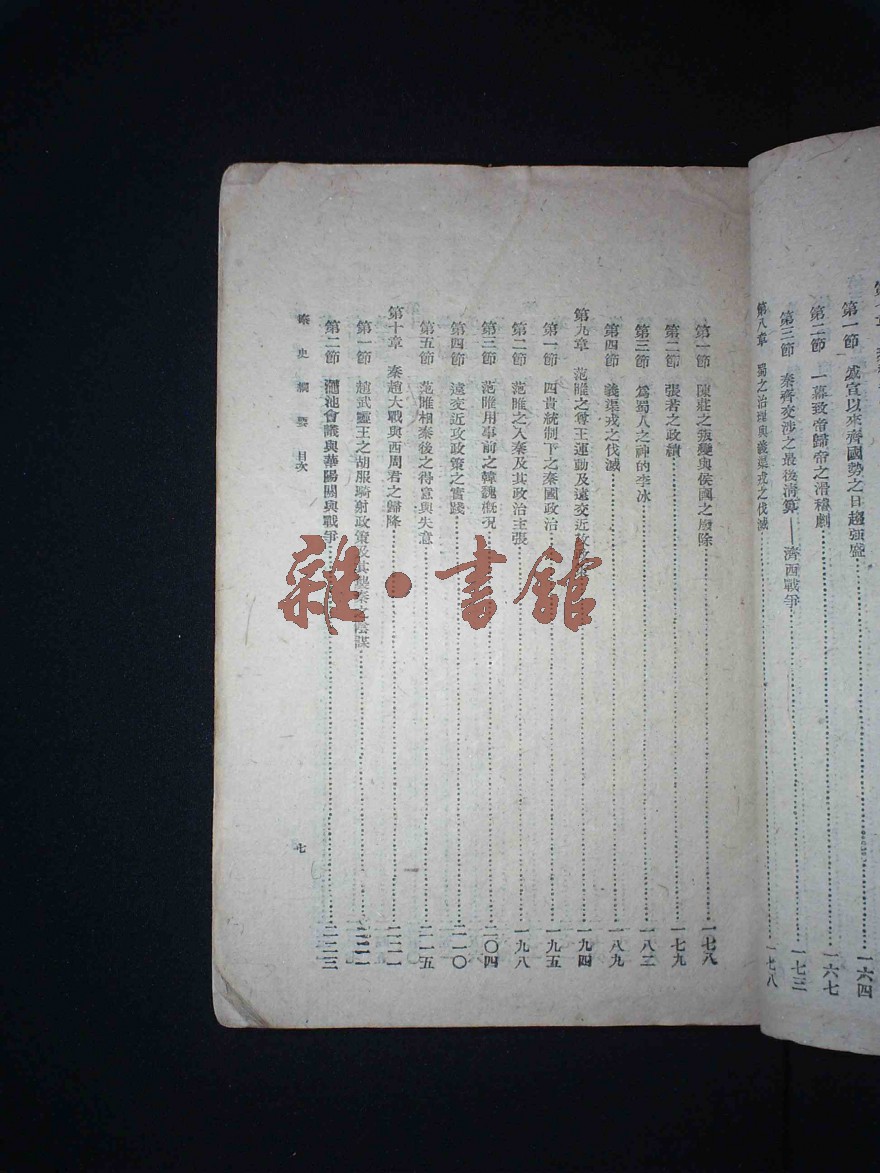 第一節 威宣以來齊國勢之日趨強盛 一六四
第二節 一幕致帝歸帝之滑稽劇 一六七
第三節 秦齊交涉之最後清算——濟西戰爭 一七三
第八章 蜀之治理與義渠戎之伐滅 一七八
第一節 陳莊之叛變與侯國之廢除 一七八
第二節 張若之政績 一七九
第三節 爲蜀人之神的李冰 一八二
第四節 義渠戎之伐滅 一八九
第九章 范睢之尊王運動及遠交近攻 一九四
第一節 四貴統制下之秦國政治 一九五
第二節 范睢之入秦及其政治主張 一九八
第三節 范睢用事前之韓魏概况 二〇四
第四節 遠交近攻政策之實踐 二一〇
第五節 范睢相秦後之得意與失意 二一五
第十章 秦趙大戰與西周君之歸降 二二一
第一節 趙武靈王之胡服騎射政策及其襲秦之陰謀
第二節 澠池會議與華陽關與戰爭 二二三
秦史綱要 目次 七
雜·書館